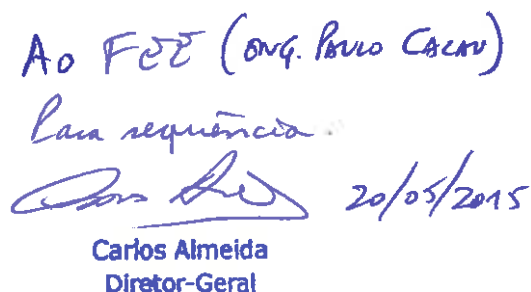 Ao FEE (ENG. PAULO CACAU)
Para sequência.
20/05/2015
Carlos Almeida
Diretor-Geral